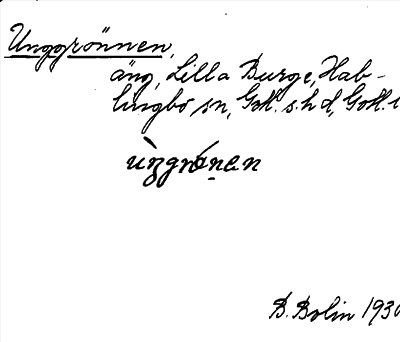 Unggrönnen,
äng, Lilla Burge, Hab-
lingbo sn, Gotl. s. hd, Gotl. l
B. Bolin 193